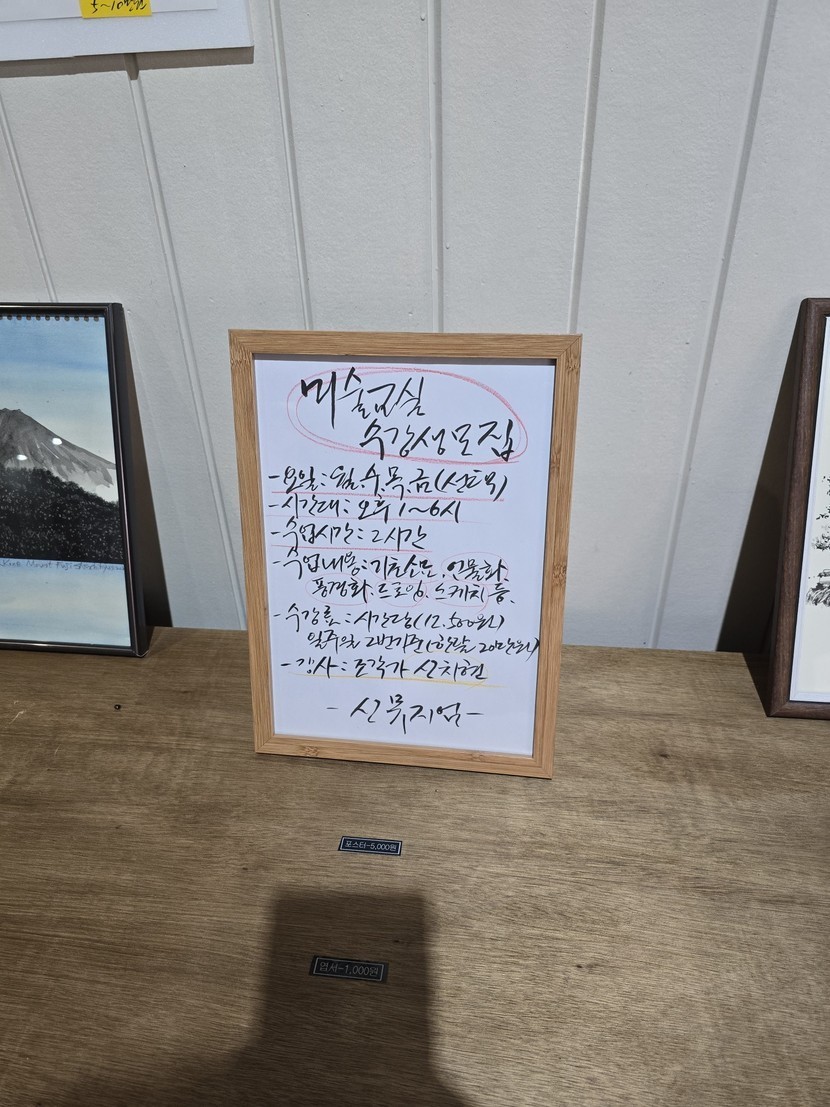 5~10만원
미술교실
수강생모집
-요일:월.수.목.금(선택)
-시간대:오후 1~6시
-수업시간:2시간
-수업내용:기초소묘.인물화.
풍경화.드로잉.스케치 등.
-수강료:시간당(12.500원)
일주일 2번기준(한달 20만원)
-강사:조각가 신치현
-신뮤지엄-
포스터-5,000원
엽서-1,000원